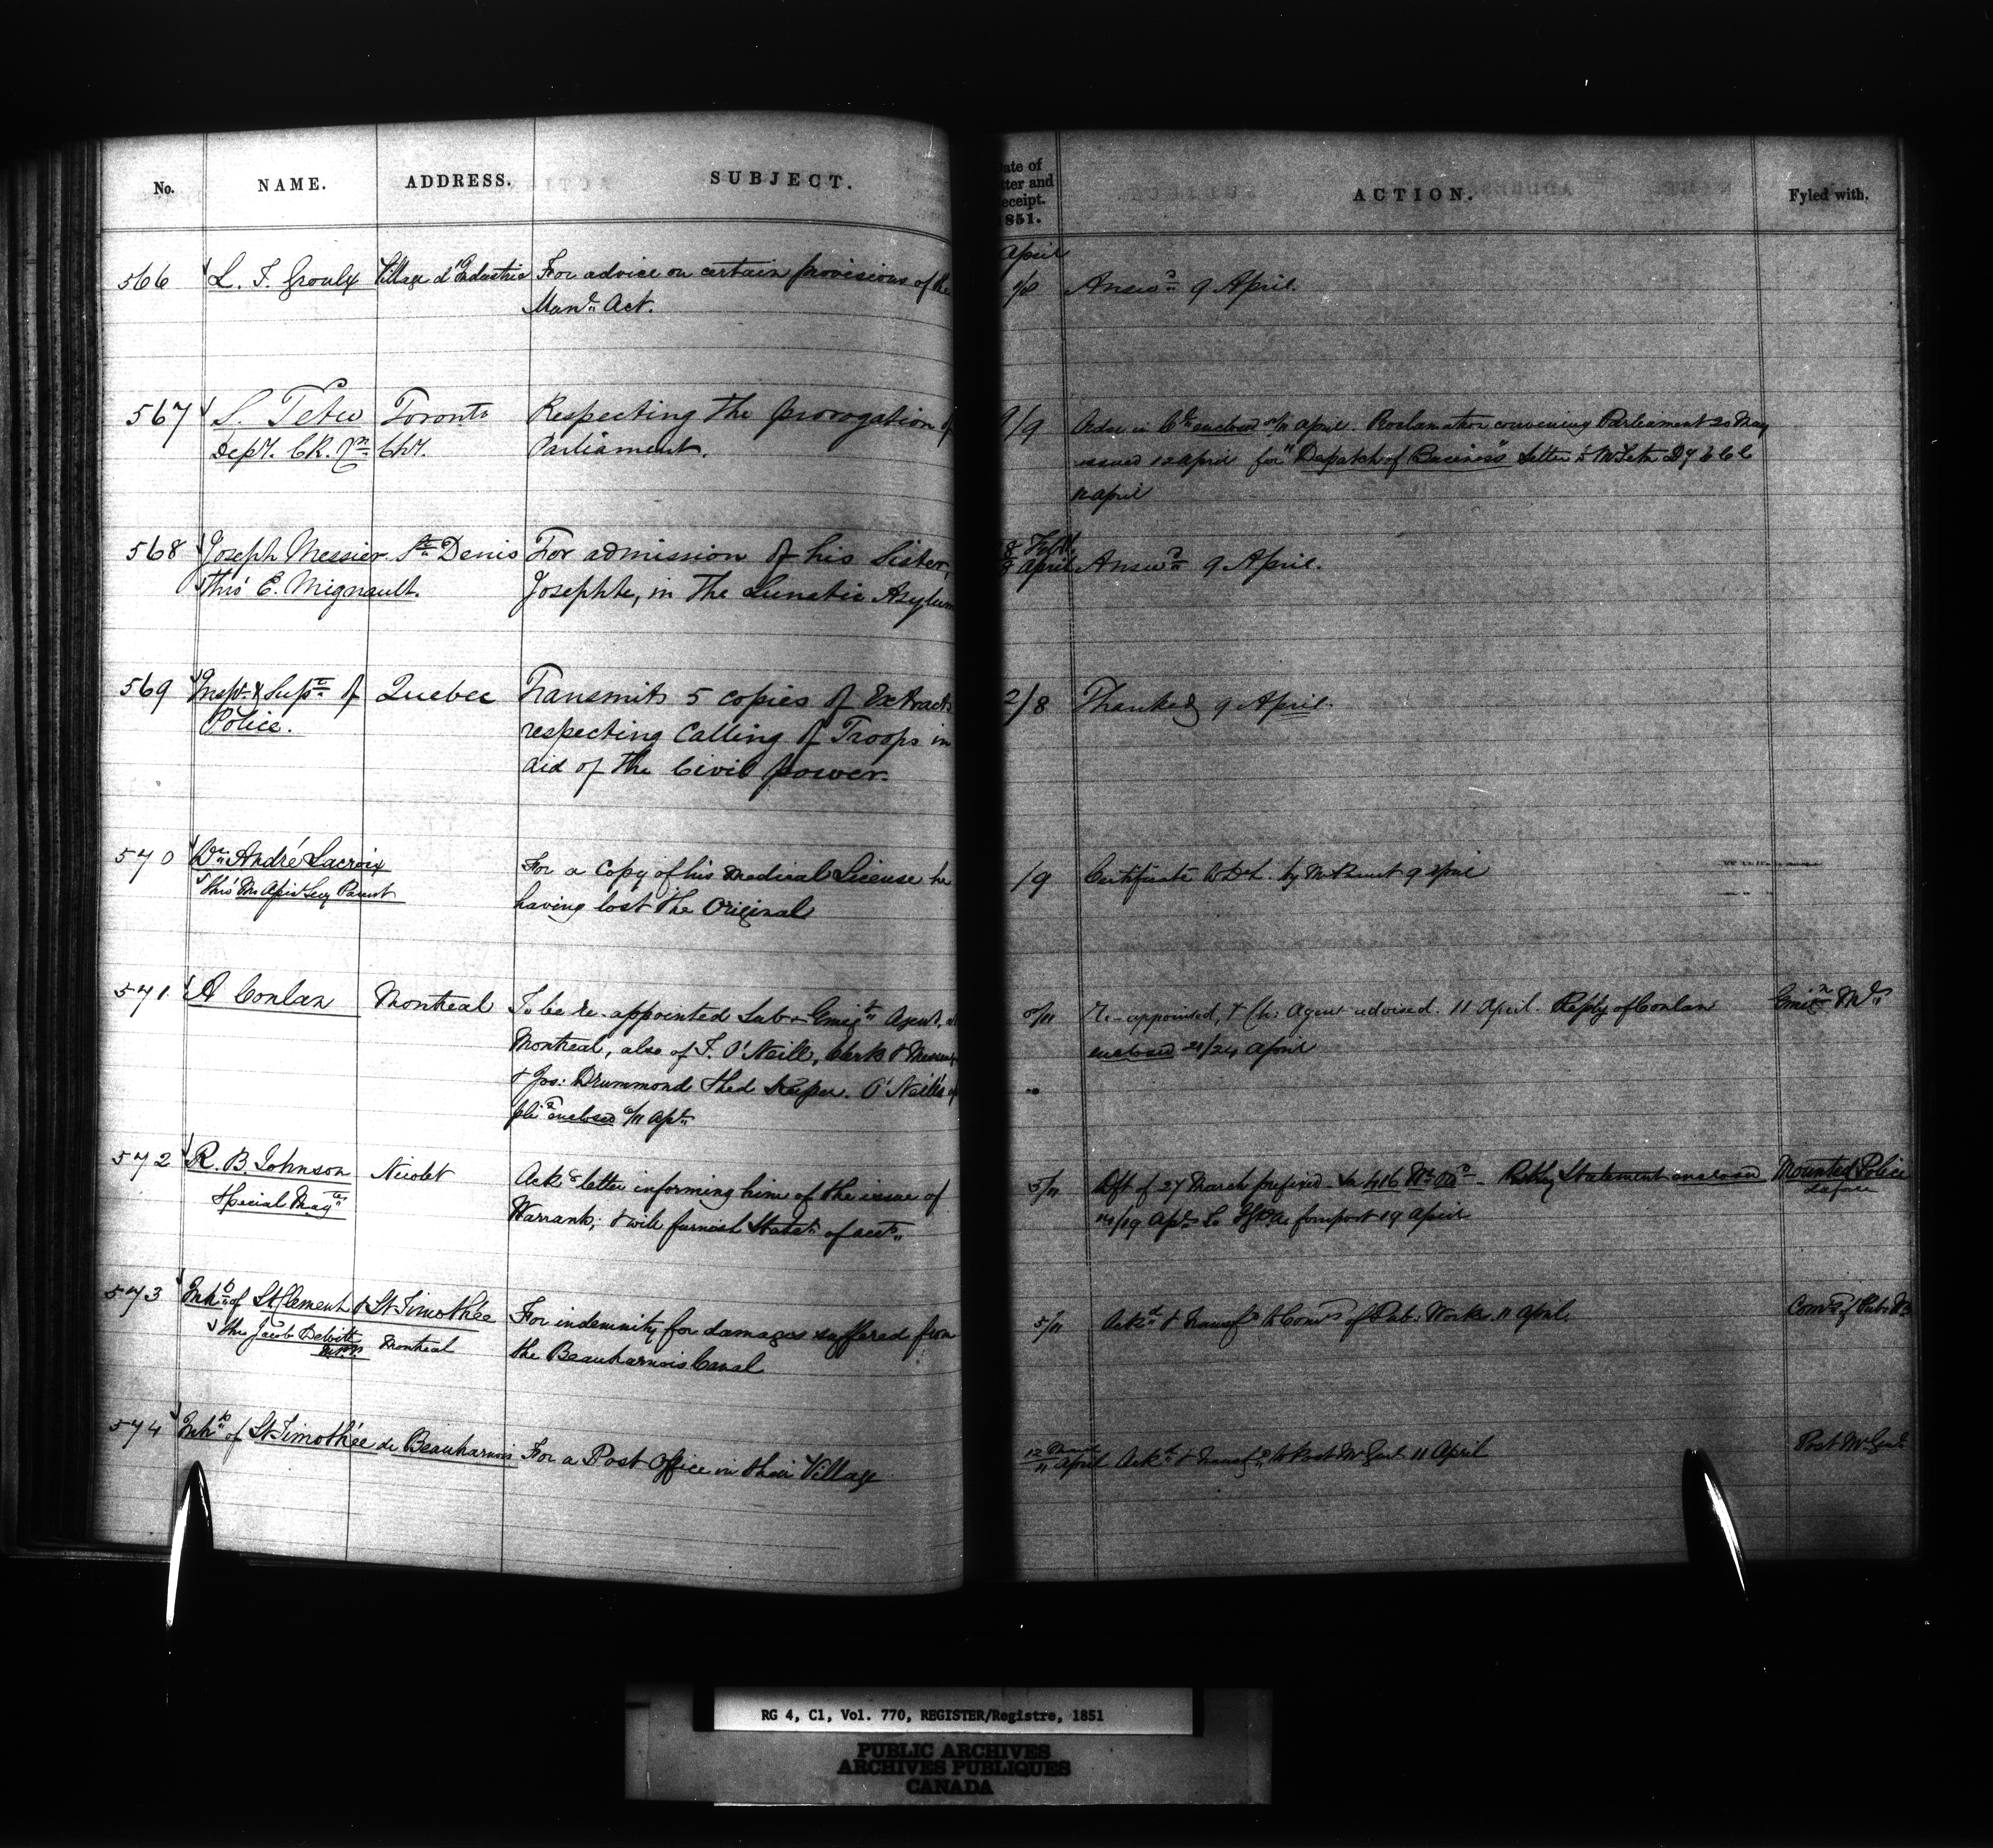 No. NAME. ADDRESS. SUBJECT.
ate of
tter and
eceipt.
1851.
ACTION. Fyled with.
April
566 L. F. Groulx Village d'Industrie For advice on certain provisions of the
Mun. Act.
1/8 Answd 9 April.
567 S. Tetu Toronto Respecting the prorogation of
Dept. Ck. Cr. Chy. Parliament.
9/9 Order in Cl enclosed 11 April. Proclamation convening Parliament 20 May
issued 12 April for "Despatch of Business" Letter to Mr Tetu
12 April
568 Joseph Messier St Denis For admission of his Sister,
Thro' E. Mignault. Josephte, in the Lunatic Asylum
8 Feb
8 April Answd 9 April.
569 Inspr & Supt of Quebec Transmits 5 copies of Extracts
Police. respecting Calling of Troops in
aid of the Civil power.
2/8 Thanked 9 April.
570 Dr André Lacroix
Thro' Mr Asst Secy Parent
For a Copy of his Medical License he
having lost the Original
/9 Certificate by Mr Parent 9 April
571. A Conlan Montreal To be re-appointed Sub-Emigt Agent, at
Montreal, also of T. O'Neill, Clerk & Messenger
& Jos: Drummond Shed Keeper. O'Neill's
enclosed /11 Apl
8/11 Re-appointed, & Ch: Agent advised. 11 April. Reply of Conlan
enclosed 21/24 April
Emign
572 R. B. Johnson Nicolet Ackg letter informing him of the issue of
Special Magte Warrant; & will furnish Statet of acct
5/11 Dft of 27 March prefixed. Statement enclosed
14/19 Apl 19 April
Mounted Police
573 Inhts of St Clement & St Timothée For indemnity for damages suffered from
thro Jacob Dewitt Montreal the Beauharnois Canal
M.P.P.
5/11 Ackd & transfd to Comrs of Pub: Works. 11 April.
Comrs of Pub: Wks
574 Inhts of St Timothée de Beauharnois For a Post Office in their Village
12 March
11 April Ackd & transfd to Post Mr Genl 11 April
Post Mr Genl
RG 4, C1, Vol. 770, REGISTER/Registre, 1851
PUBLIC ARCHIVES
ARCHIVES PUBLIQUES
CANADA